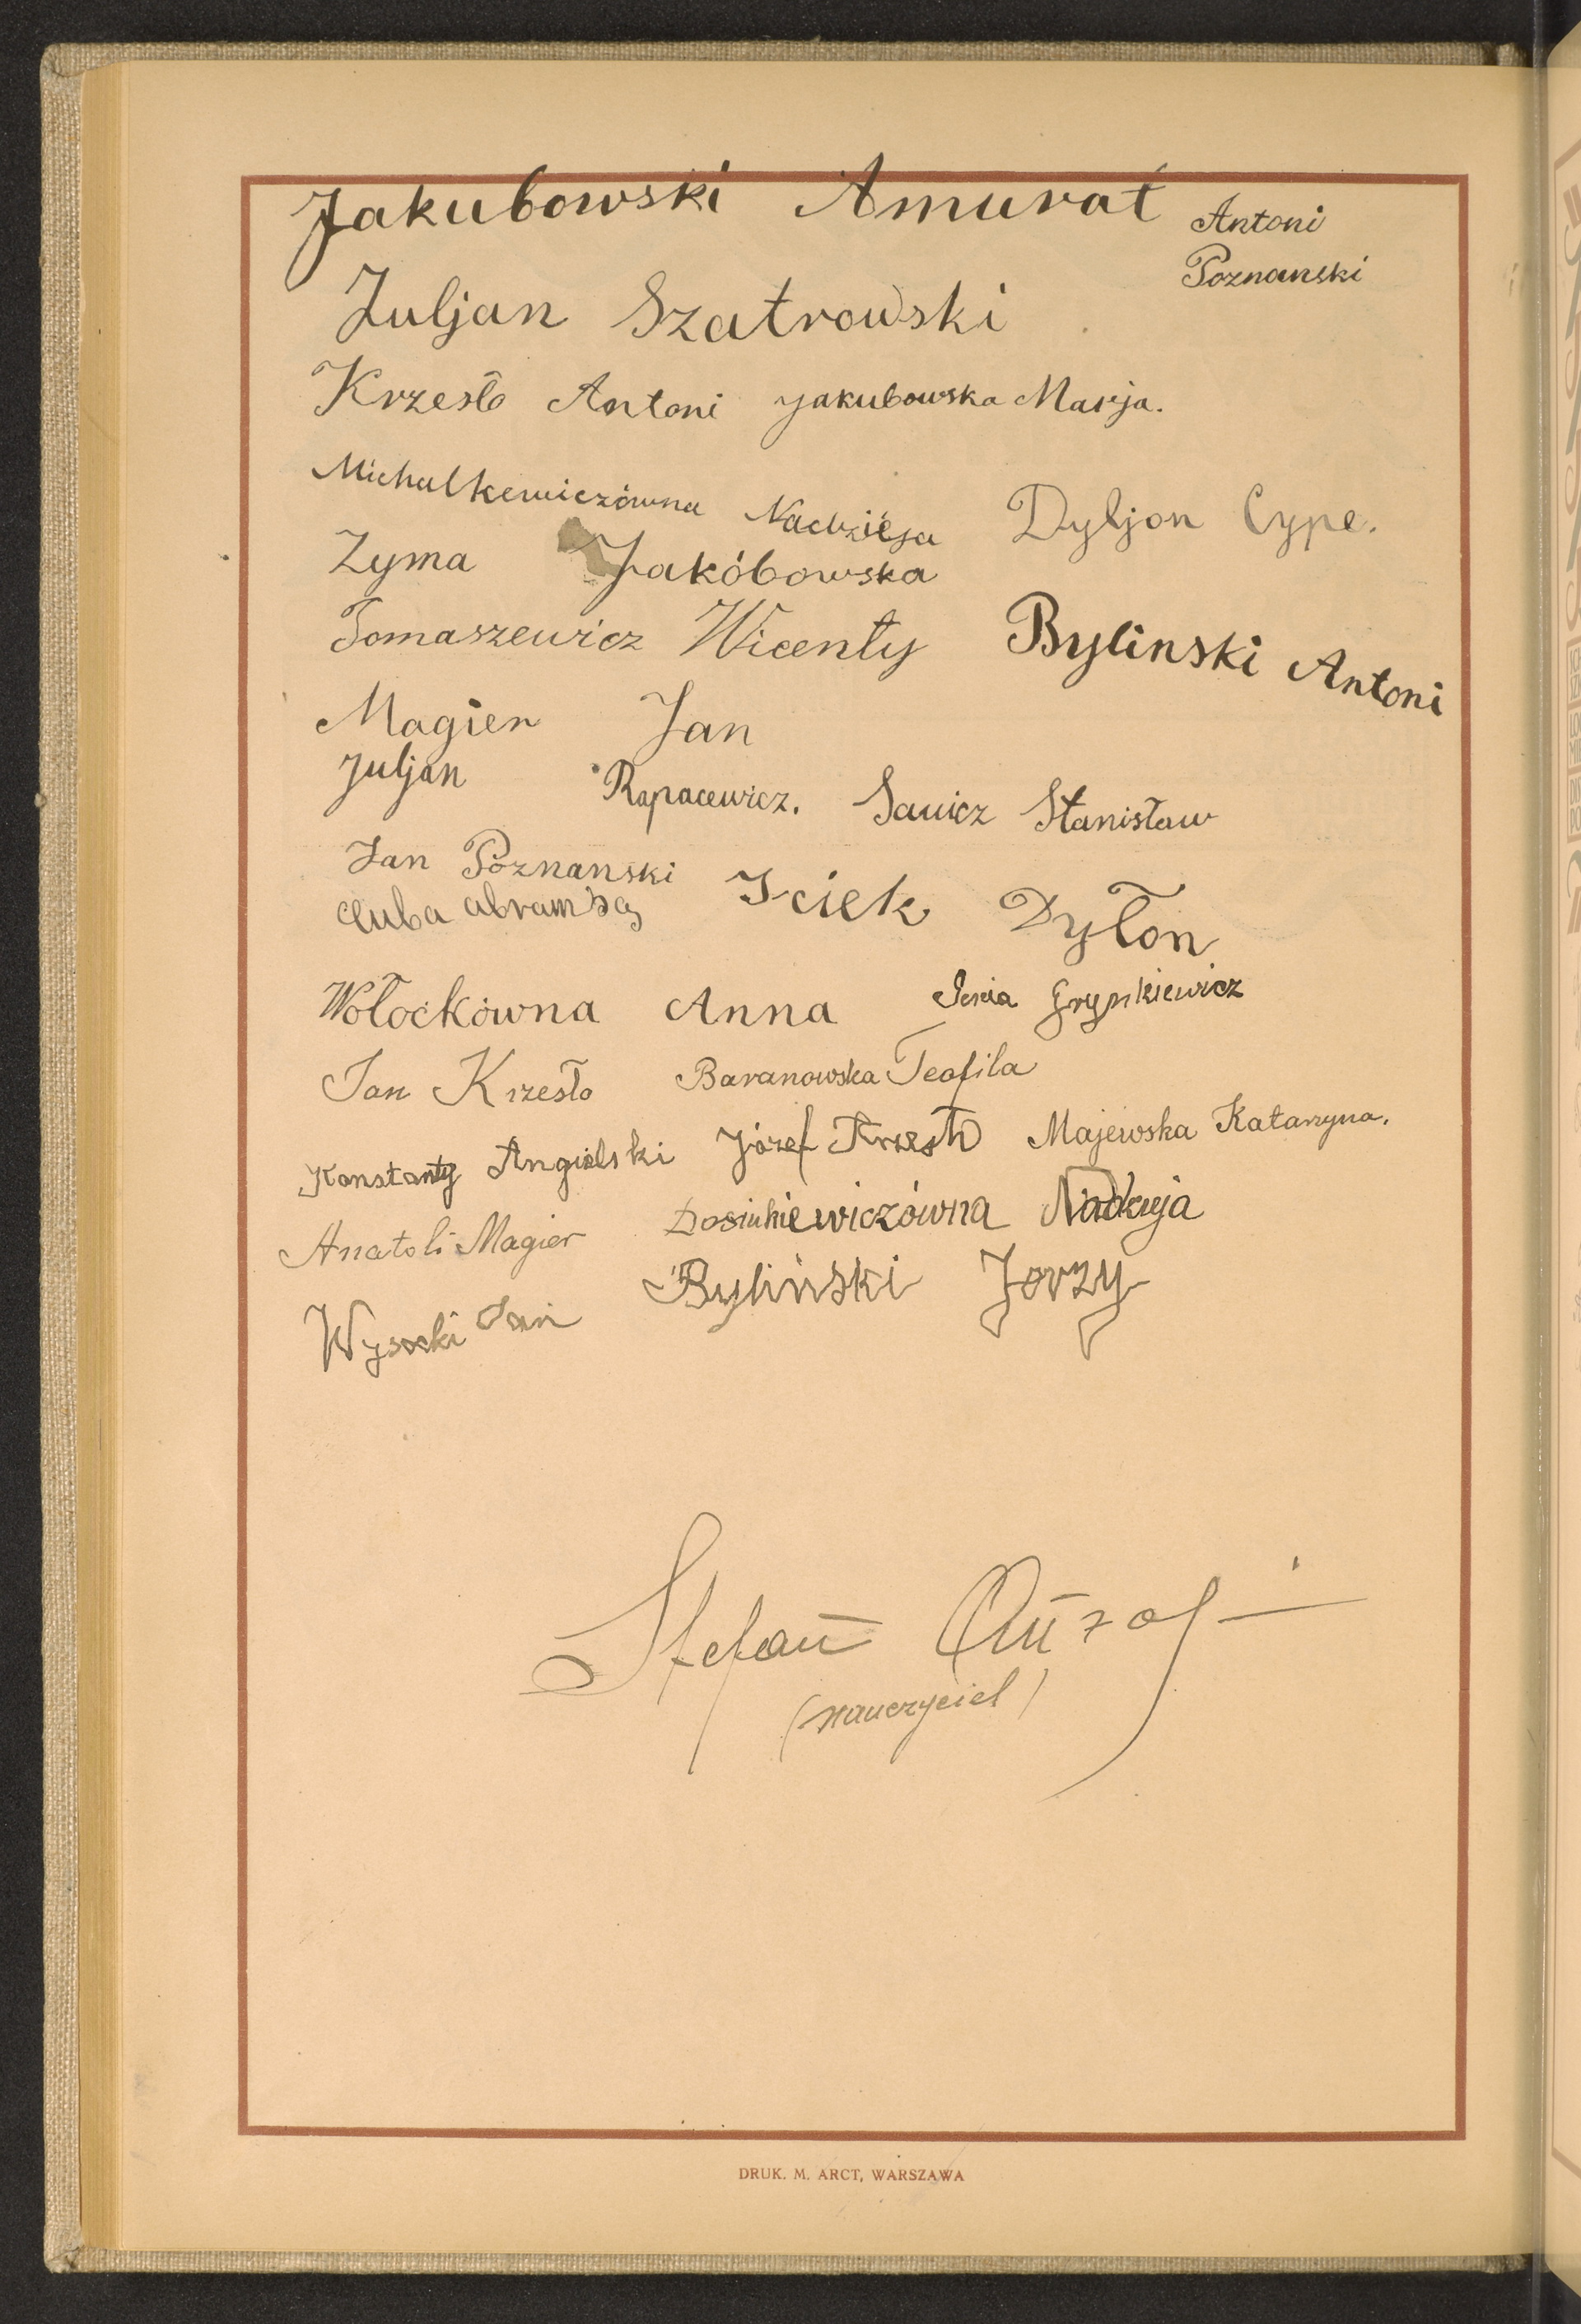 Jakubowski Amurat Antoni
Poznanski
Juljan Szatrowski
Krzesło Antoni Jakubowska Marja.
Michalkewiczówna Nadzieja Dyljon Cype.
Zyma Jakóbowska
Tomaszewicz Wicenty Bylinski Antoni
Magier Jan
Juljan Rapacewicz. Sawicz Stanisław
Jan Poznanski
Iciek Dyłon
Wołockówna Anna Grynkiewicz
Jan Krzesło Baranowska Teofila
Konstanty Angielski Józef Krzesło Majewska Katarzyna.
Anatoli Magier Nadzieja
Wysocki Jan Byliński Jerzy
Stefan
(nauczyciel)
DRUK. M. ARCT, WARSZAWA